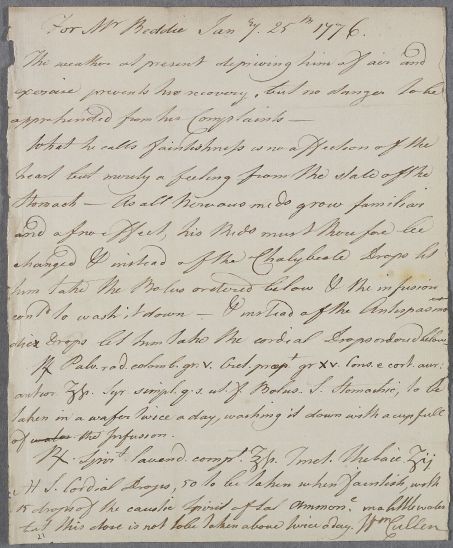 For Mr Beddie Jany. 25th 1776.
The weather at present depriving him of air and
exercise prevents his recovery, but no danger to be
apprehended from his Complaints —
What he calls faintishness is no affection of the
heart but merely a feeling from the state of the
Stomach — As all Nervous meds grow familiar
and of no effect, his Meds must therefore be
changed & instead of the Chalybeate Drops let
him take the Bolus ordered below & the infusion
contd to wash it down — & instead of the Antispasmo
dick Drops let him take the cordial Drops ordered below
℞ Pulv. rad. colomb. gr. v. Cret. ppt gr. xv. Cons. e cort. aur:
antior ʒſs. Syr simpl. q. s. ut. f. Bolus. S. Stomachic, to be
taken in a wafer twice a day, washing it down with a cup full
of water the Infusion.
℞. Spirit. lavend. compt. ℥ſs. Tinct. Thebaic ʒij
M S. Cordial Drops, 50 to be taken when faintish, with
15 drops of the caustic Spirit of Sal Ammonc. in a little water
but this dose is not to be taken above twice a day. Wm Cullen
21